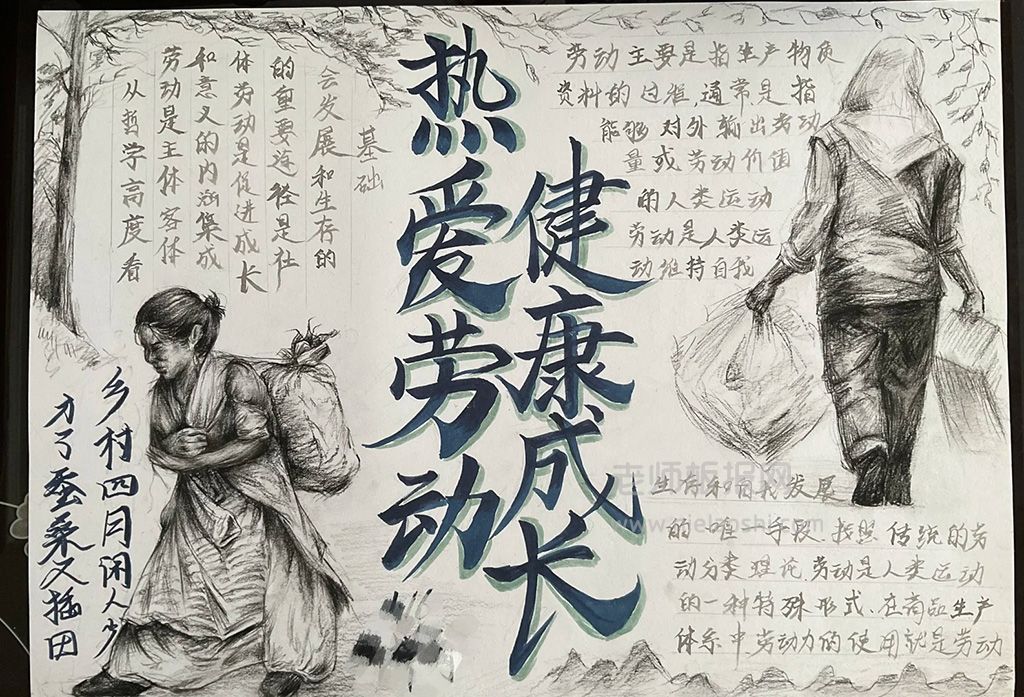 热爱劳动
健康成长
从哲学高度看
劳动是主体客体
和意义的内涵集成
体劳动是促进成长
的重要途径是社
会发展和生存的
基础
劳动主要是指生产物质
资料的过程,通常是指
能够对外输出劳动
量或劳动价值
的人类运动
劳动是人类运
动维持自我
生存和自我发展
的唯一手段.按照传统的劳
动分类理论,劳动是人类运动
的一种特殊形式.在商品生产
体系中,劳动力的使用就是劳动
乡村四月闲人少
才了蚕桑又插田
老师板报网